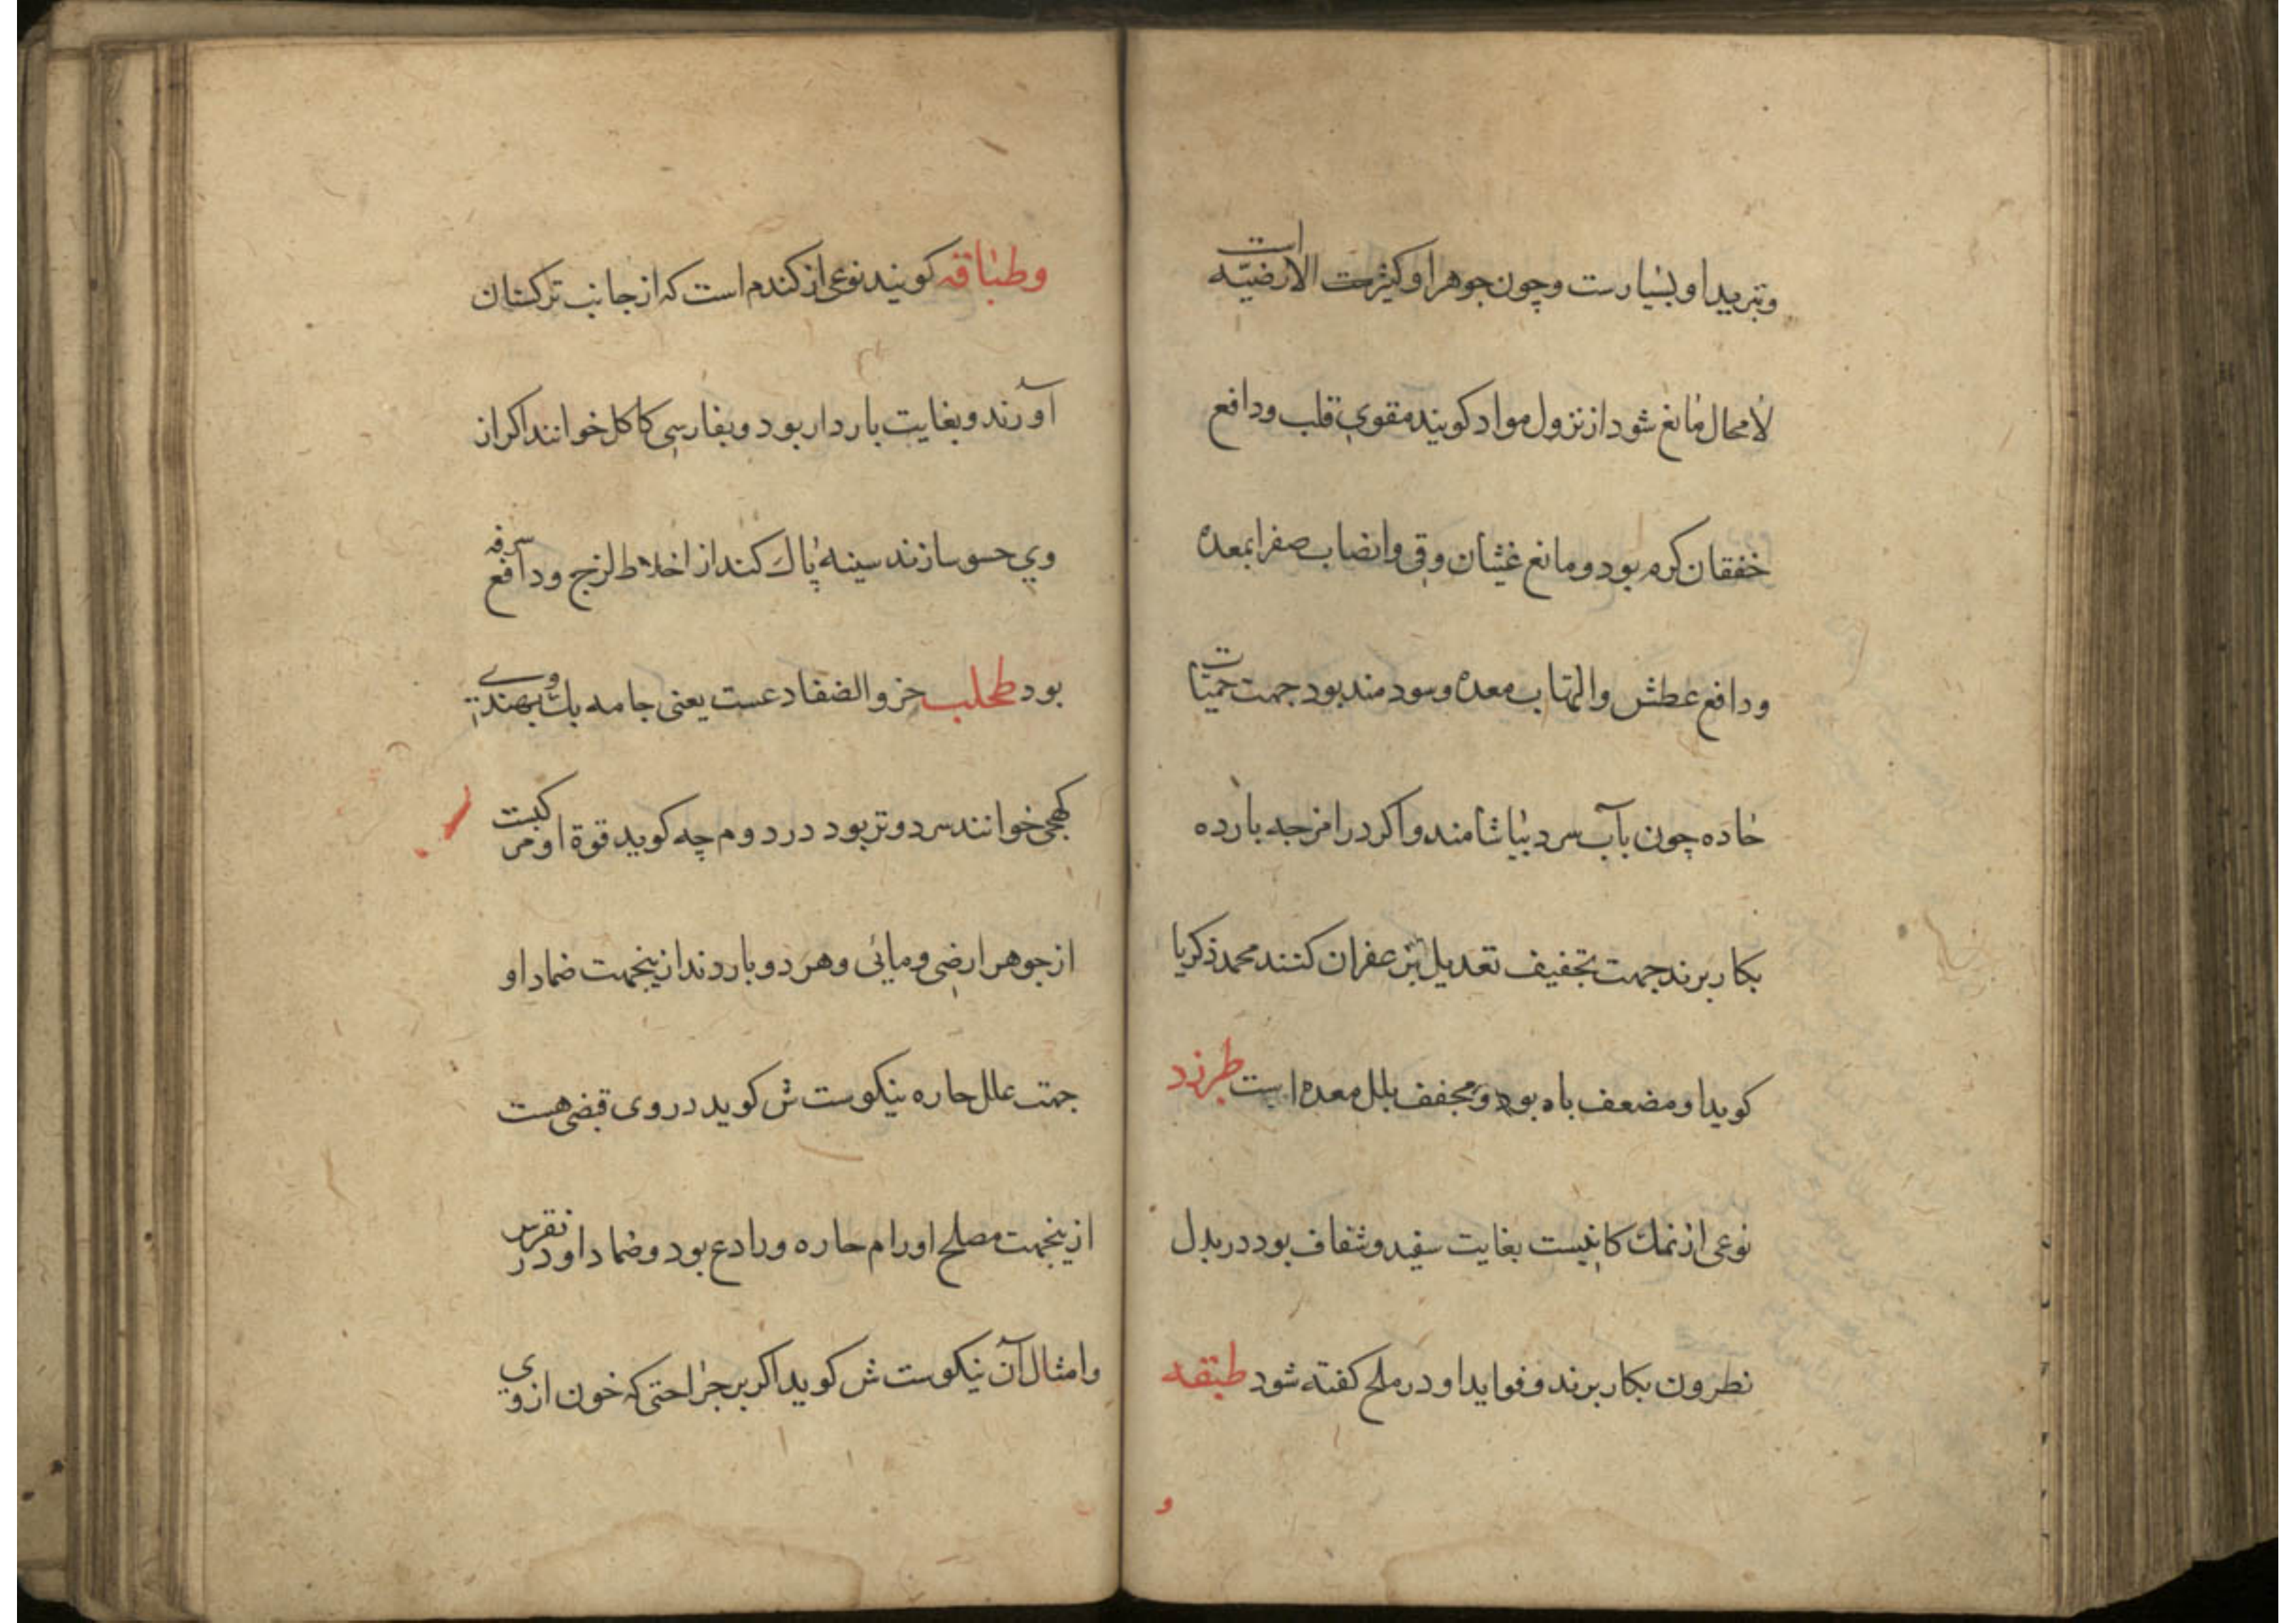 وتبرید او بسیارست وچون جوهر او کثیرت الارضیّه است
لامحال مانع شود از نزول مواد کویند مقوی قلب ودافع
خفقان کرم بود ومانع غثیان وقی وانضاب صفرا بمعده
ودافع عطش والتهاب معده وسودمند بود جهت حمیات
حاده چون بآب سرد بیاشامند واکر در امزجه بارده
بکار برند جهت تجفیف تعدیل بزعفران کنند محمد ذکریا
کوید او مضعف باه بود ومجفف بلل معده است طبرزد
نوعی از نمك کانیست بغایت سفید وشفاف بود در بدل
نطرون بکار برند وفواید او در ملح کفته شود طبقه
و
وطباقه کویند نوعی از کندم است که از جانب ترکستان
آورند وبغایت باردار بود وبفارسی کاکل خوانند اکر از
وی حسو سازند سینه پاك کند از اخلاط لزج ودافع سرفه
بود طحلب خزو الضفادعست یعنی جامه بك وبهندی
کهجی خوانند سرد وتر بود در دوم چه کوید قوة او مرکبست
از جوهر ارضی ومائی وهر دو باردند ازینجهت ضماد او
جهت علل حاره نیکوست ش کوید در وی قبضی هست
ازینجهت مصلح اورام حاره ورادع بود وضماد او در نقرس
وامثال آن نیکوست ش کوید اکر بر جراحتی که خون از وی